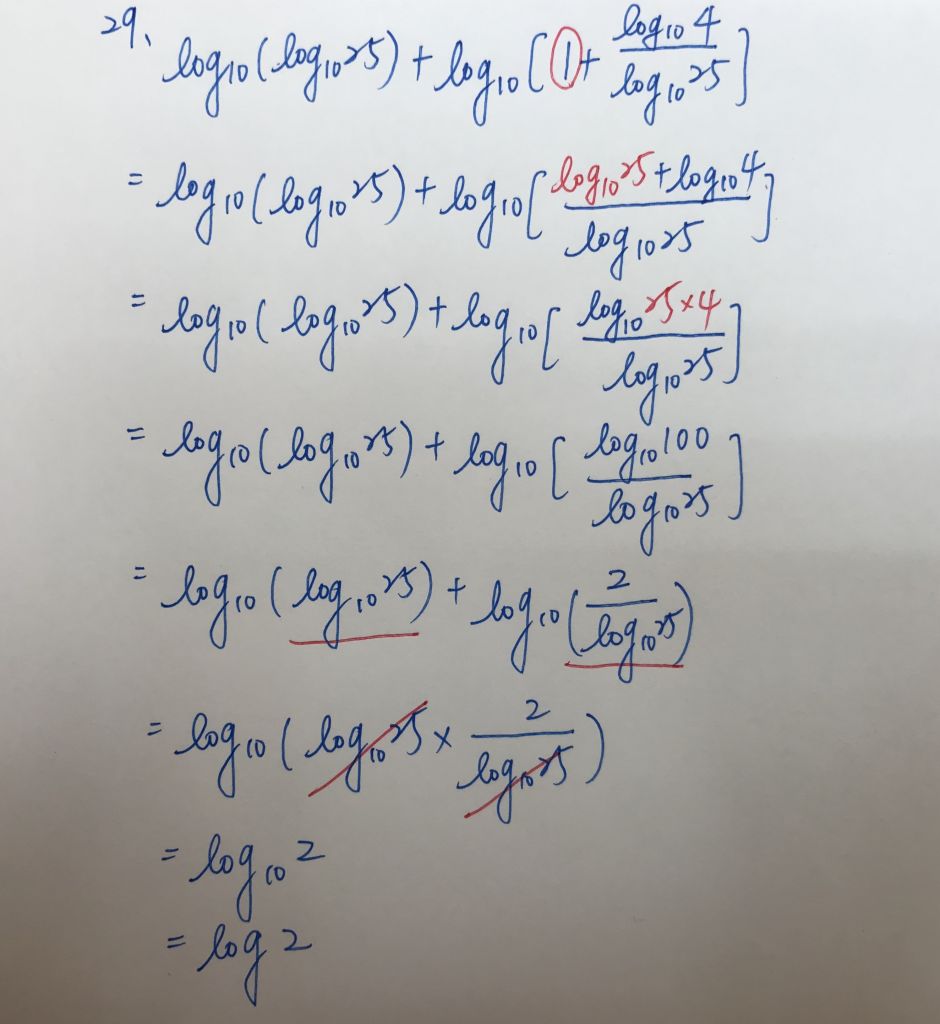 29、 log₁₀(log₁₀25) + log₁₀[1 + \frac{log₁₀4}{log₁₀25}]
= log₁₀(log₁₀25) + log₁₀[\frac{log₁₀25 + log₁₀4}{log₁₀25}]
= log₁₀(log₁₀25) + log₁₀[\frac{log₁₀25×4}{log₁₀25}]
= log₁₀(log₁₀25) + log₁₀[\frac{log₁₀100}{log₁₀25}]
= log₁₀(log₁₀25) + log₁₀(\frac{2}{log₁₀25})
= log₁₀(log₁₀25 × \frac{2}{log₁₀25})
= log₁₀2
= log 2